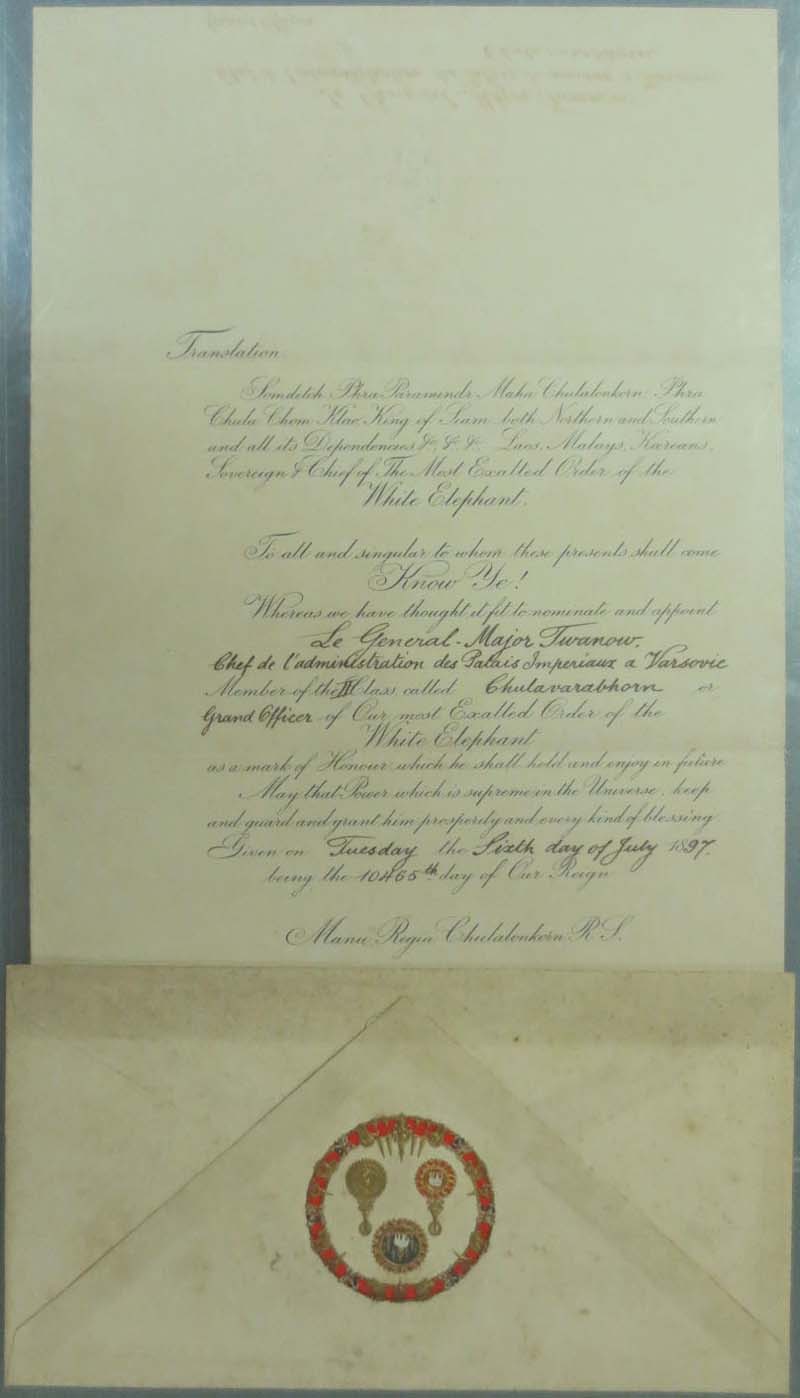 Translation
Somdetch Phra Paramindr Maha Chulalonkorn Phra
Chula Chom Klao King of Siam both Northern and Southern
and all its Dependencies &. &. &. Laos, Malays, Kareans,
Sovereign & Chief of The Most Exalted Order of the
White Elephant.
To all and singular to whom these presents shall come
Know Ye!
Whereas we have thought it fit to nominate and appoint
Le General-Major Twanow.
Chef de l'administration des Palais Imperiaux a Varsovie
Member of the II Class called Chulavarabhorn or
Grand Officer of Our most Exalted Order of the
White Elephant
as a mark of Honour which he shall hold and enjoy in future
May that Power which is supreme in the Universe, keep
and guard and grant him prosperity and every kind of blessing
Given on Tuesday the Sixth day of July 1897.
being the 10465th day of Our Reign
Manu Regia Chulalonkorn R. S.